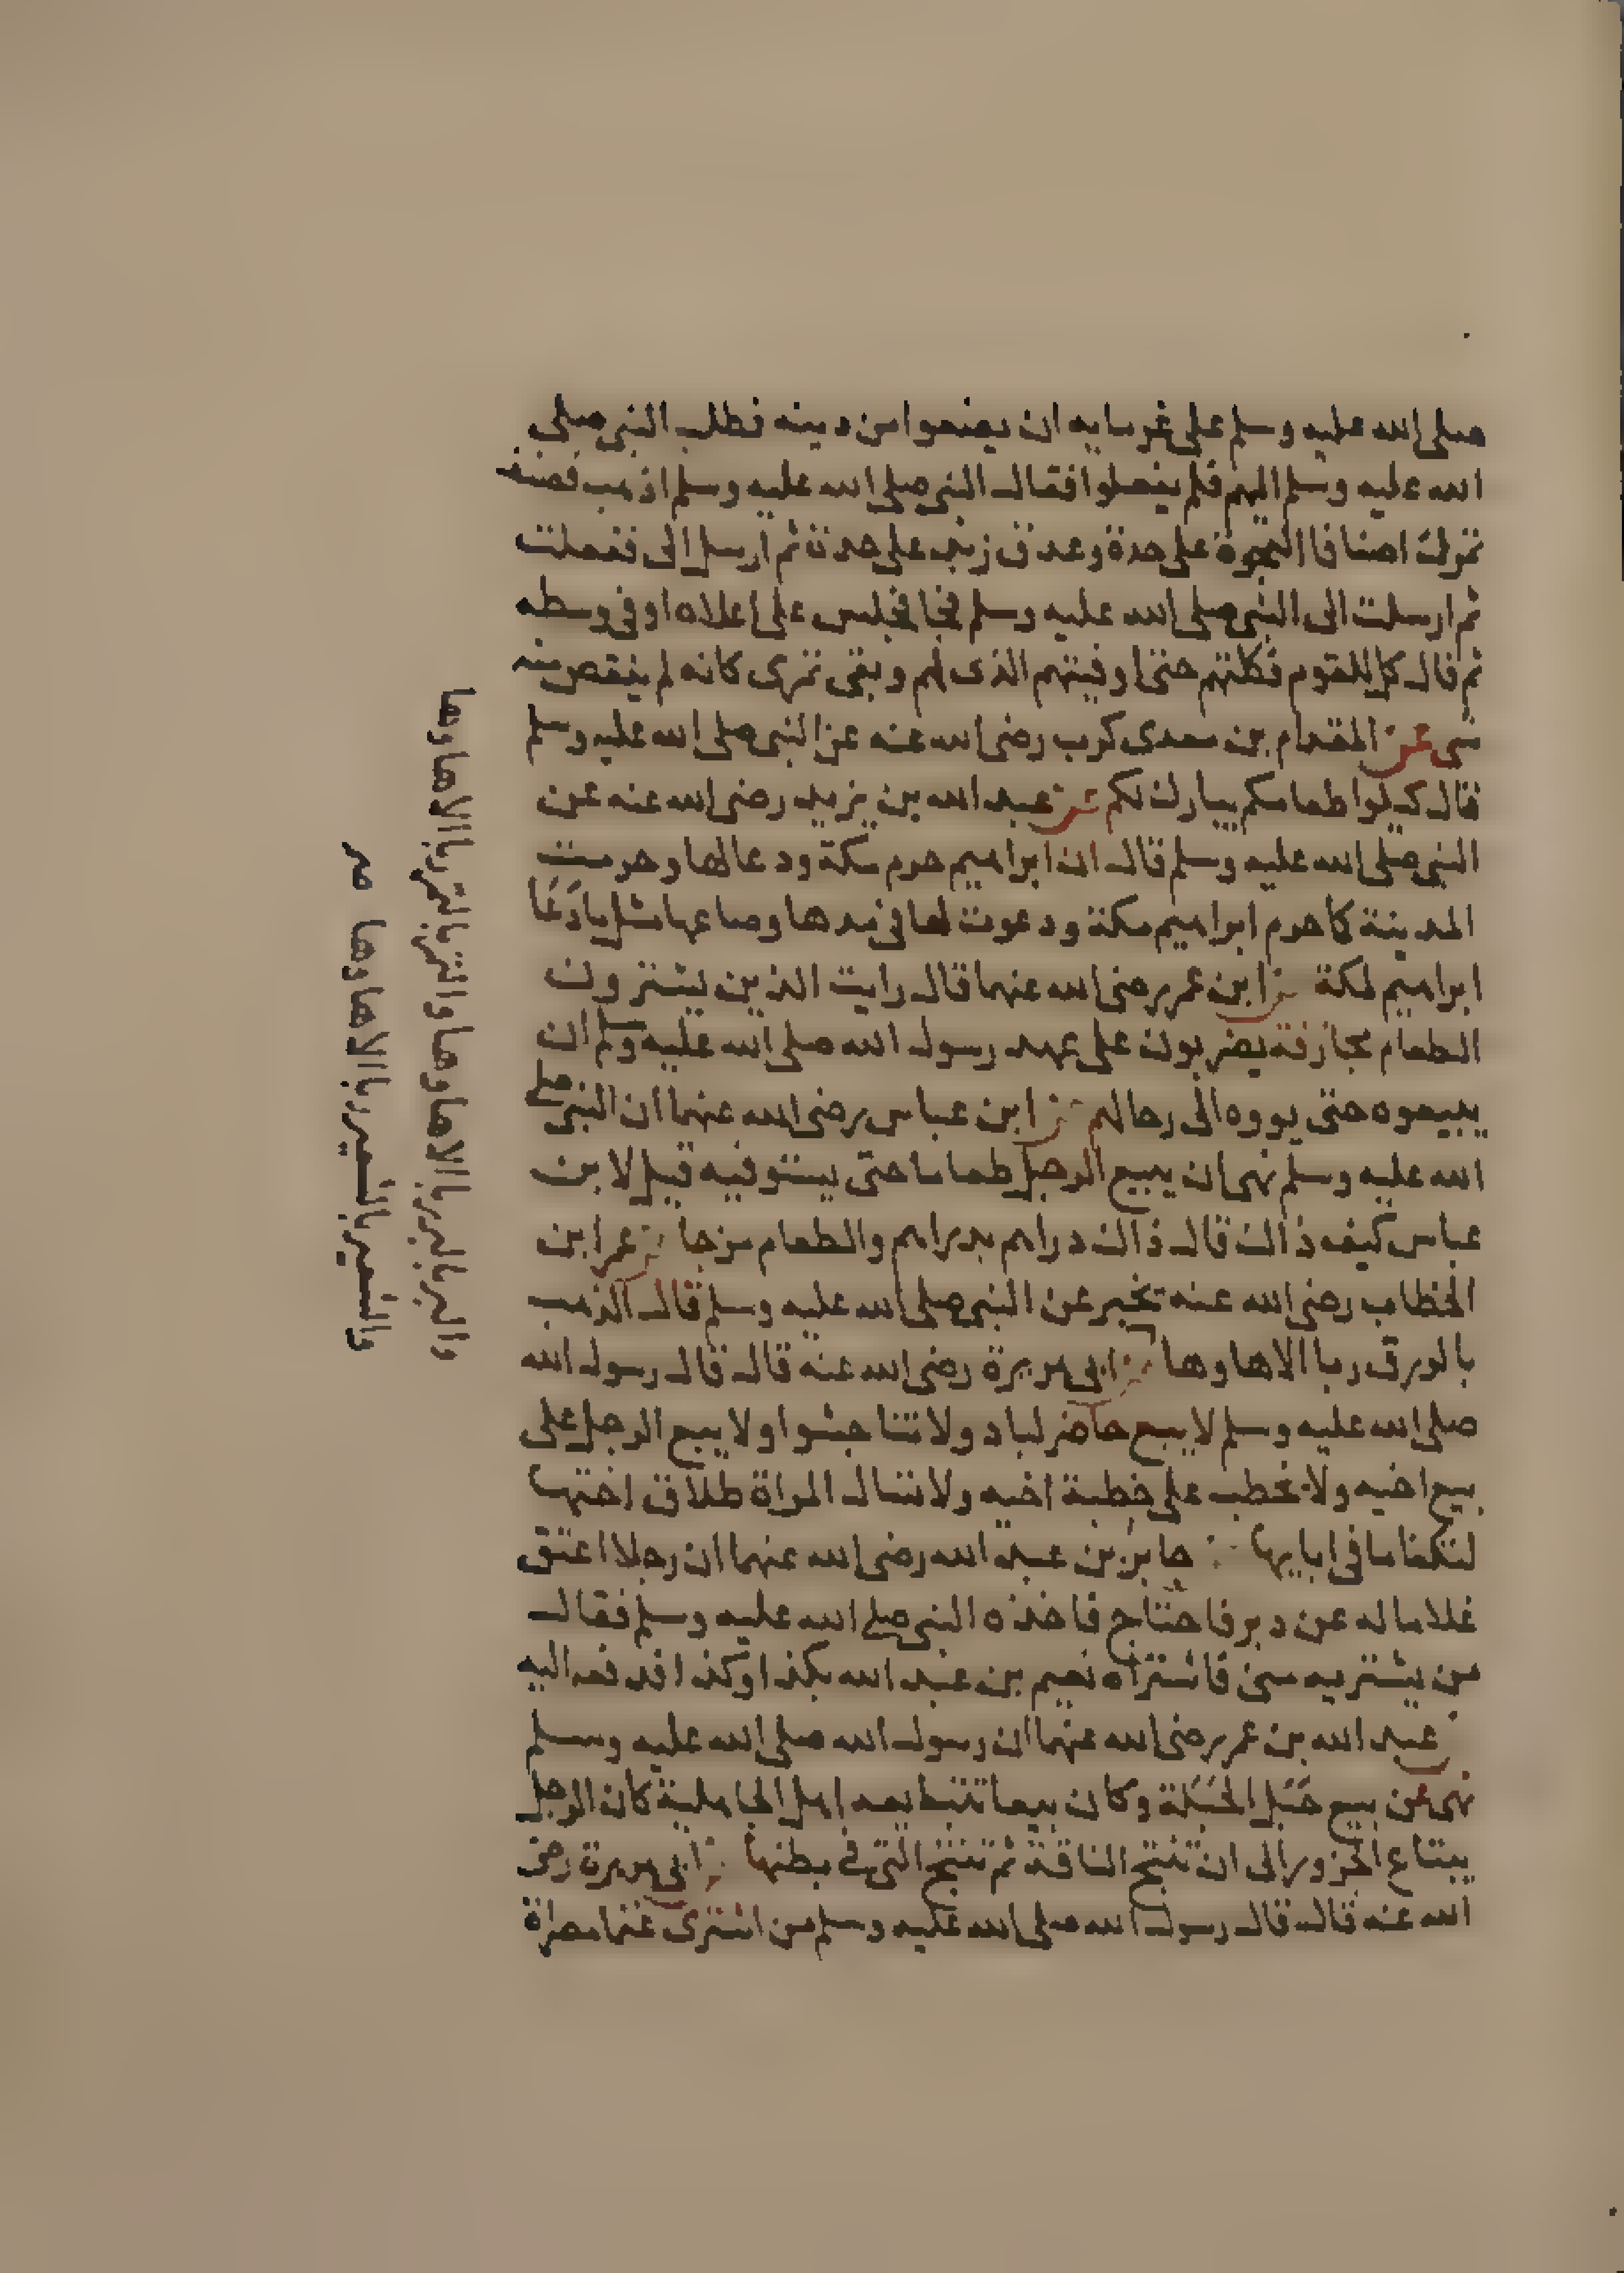 صلى الله عليه وسلم على غرمايه ان يضعوا من دينه فطلب النبي صلى
الله عليه وسلم اليهم فلم يفعلوا فقال النبي صلى الله عليه وسلم اذهب فصنف
تمرك اصنافا العجوة على حدة وعدق زيد على حدة ثم ارسل الى ففعلت
ثم ارسلت الى النبي صلى الله عليه وسلم فجا فجلس على اعلاه او في وسطه
ثم قال كل للقوم فكلتهم حتى اوفيتهم الذى لهم وبقى تمرى كانه لم ينقص منه
شى عن المقدام بن معدى كرب رضى الله عنه عن النبي صلى الله عليه وسلم
قال كيلوا طعامكم يبارك لكم عن عبد الله بن يزيد رضى الله عنه عن
النبي صلى الله عليه وسلم قال ان ابراهيم حرم مكة ودعا لها وحرمت
المدينة كما حرم ابراهيم مكة ودعوت لها في مدها وصاعها مثل ما دعا
ابراهيم لمكة عن ابن عمر رضى الله عنهما قال رايت الذين يشترون
الطعام مجازفة يضربون على عهد رسول الله صلى الله عليه وسلم ان
يبيعوه حتى يووه الى رحالهم عن ابن عباس رضى الله عنهما ان النبي صلى
الله عليه وسلم نهى ان يبيع الرجل طعاما حتى يستوفيه قيل لابن
عباس كيف ذاك قال ذاك دراهم بدراهم والطعام مرجا عن عمر ابن
الخطاب رضى الله عنه يخبر عن النبي صلى الله عليه وسلم قال الذهب
بالورق ربا الا ها وها عن ابى هريرة رضى الله عنه قال قال رسول الله
صلى الله عليه وسلم لا يبيع حاضر لباد ولا تناجشوا ولا يبيع الرجل على
بيع اخيه ولا يخطب على خطبة اخيه ولا تسال المراة طلاق اختها
لتكفا ما فى انايها عن جابر بن عبد الله رضى الله عنهما ان رجلا اعتق
غلاما له عن دبر فاحتاج فاخذه النبي صلى الله عليه وسلم فقال
من يشتريه منى فاشتراه نعيم بن عبد الله بكذا وكذا فدفعه اليه
عن عبد الله بن عمر رضى الله عنهما ان رسول الله صلى الله عليه وسلم
نهى عن بيع حَبَل الحَبَلة وكان بيعا يتبايعه اهل الجاهلية كان الرجل
يبتاع الجزور الى ان تنتج الناقة ثم تنتج التى فى بطنها عن ابى هريرة رضى
الله عنه قال قال رسول الله صلى الله عليه وسلم من اشترى غنما مصراة
والبر بالبر ربا الا ها وها والتمر بالتمر ربا الا ها وها
والشعير بالشعير ربا الا ها وها صح